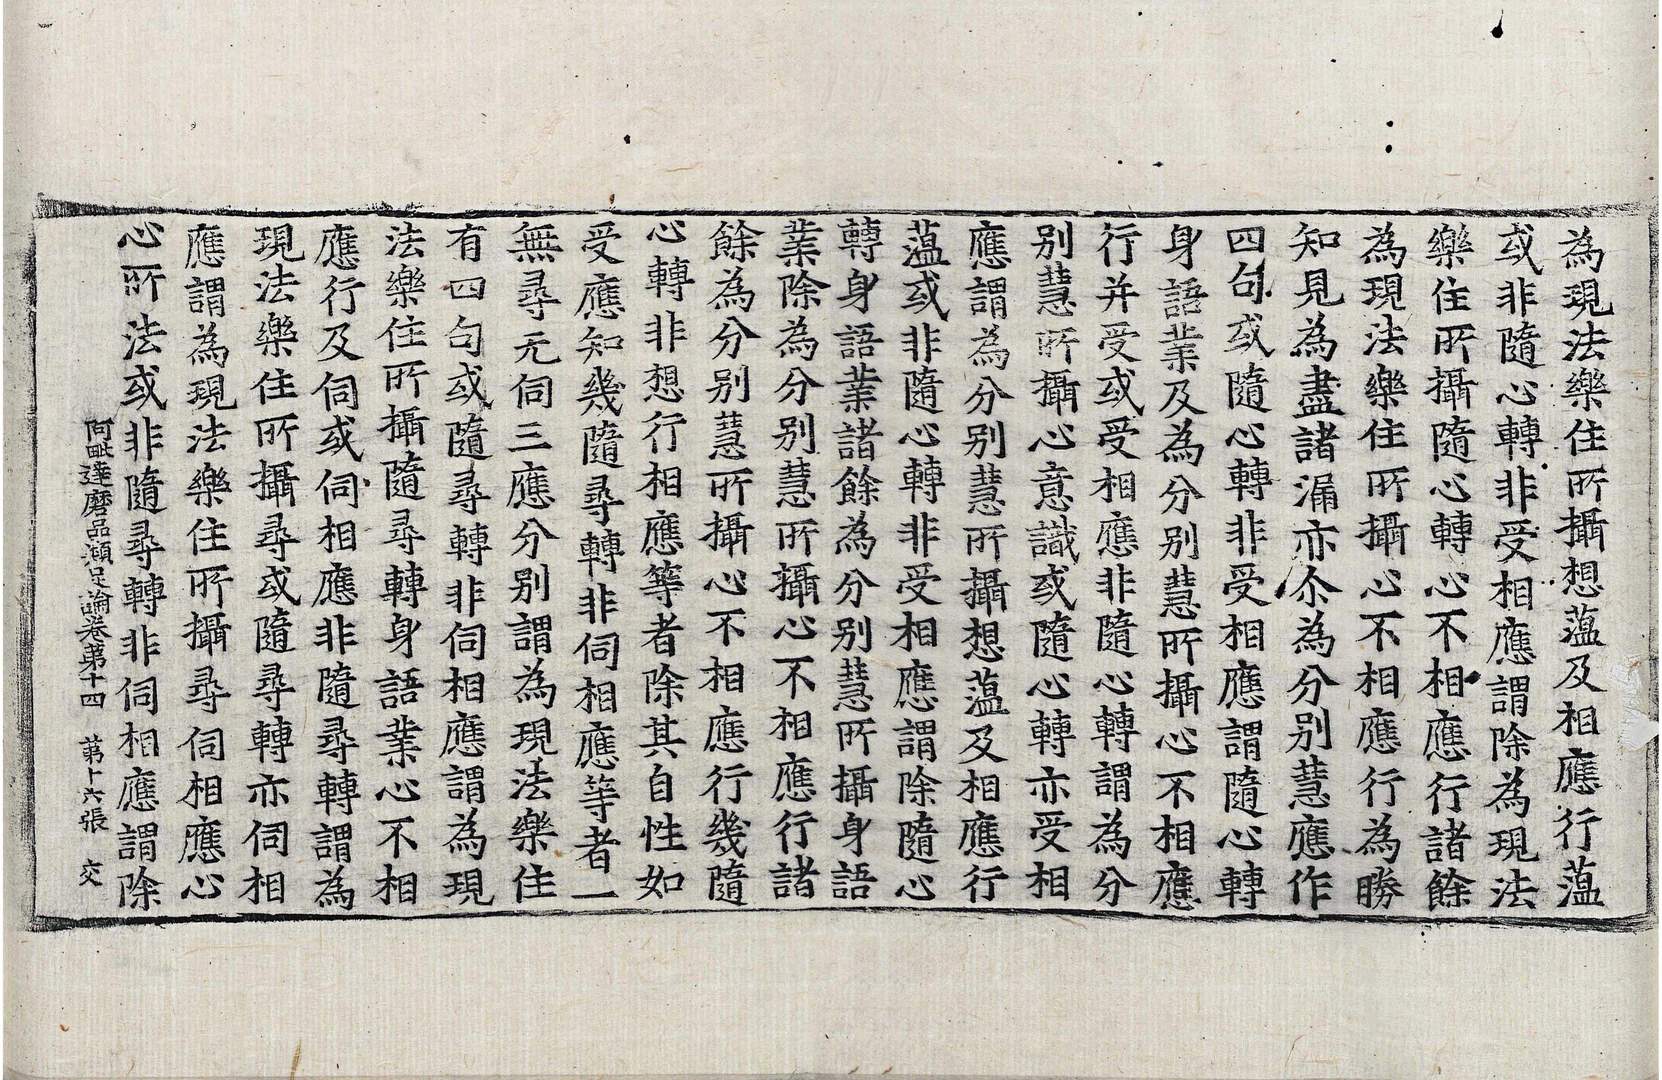 為現法樂住所攝想薀及相應行薀
或非隨心轉非受相應謂除為現法
樂住所攝隨心轉心不相應行諸餘
為現法樂住所攝心不相應行為勝
知見為盡諸漏亦尒為分別慧應作
四句或隨心轉非受相應謂隨心轉
身語業及為分別慧所攝心不相應
行并受或受相應非隨心轉謂為分
別慧所攝心意識或隨心轉亦受相
應謂為分別慧所攝想薀及相應行
薀或非隨心轉非受相應謂除隨心
轉身語業諸餘為分別慧所攝身語
業除為分別慧所攝心不相應行諸
餘為分別慧所攝心不相應行幾隨
心轉非想行相應等者除其自性如
受應知幾隨尋轉非伺相應等者一
無尋无伺三應分別謂為現法樂住
有四句或隨尋轉非伺相應謂為現
法樂住所攝隨尋轉身語業心不相
應行及伺或伺相應非隨尋轉謂為
現法樂住所攝尋或隨尋轉亦伺相
應謂為現法樂住所攝尋伺相應心
心所法或非隨尋轉非伺相應謂除
阿毗達磨品類足論卷第十四 第十六張 交